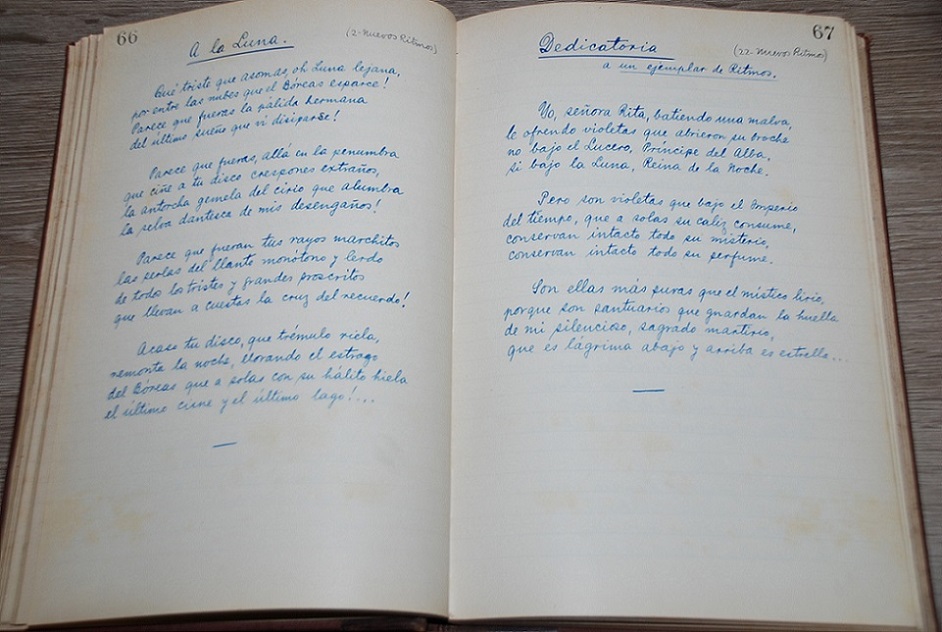 66
A la Luna.
(2-Nuevos Ritmos)
Qué triste que asomas, oh Luna lejana,
por entre las nubes que el Bóreas esparce!
Parece que fueras la pálida hermana
del último sueño que vi disiparse!
Parece que fueras, allá en la penumbra
que ciñe a tu disco crespones extraños,
la antorcha gemela del cirio que alumbra
la selva dantesca de mis desengaños!
Parece que fueran tus rayos marchitos
las perlas del llanto monótono y lerdo
de todos los tristes y grandes proscritos
que llevan a cuestas la cruz del recuerdo!
Acaso tu disco, que trémulo riela,
remonte la noche, llorando el estrago
del Bóreas que a solas con su hálito hiela
el último cisne y el último lago!...
67
Dedicatoria
(22-Nuevos Ritmos)
a un ejemplar de Ritmos.
Yo, señora Rita, batiendo una malva,
le ofrendo violetas que abrieron su broche
no bajo el Lucero, Príncipe del Alba,
si bajo la Luna, Reina de la Noche.
Pero son violetas que bajo el Imperio
del tiempo, que a solas su caliz consume,
conservan intacto todo su misterio,
conservan intacto todo su perfume.
Son ellas más puras que el místico lirio,
porque son santuarios que guardan la huella
de mi silencioso, sagrado martirio,
que es lágrima abajo y arriba es estrella...